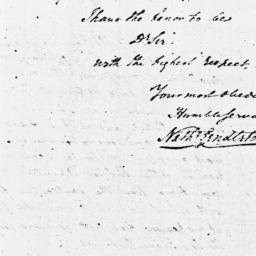 I have the honor to be
Dr Sir
with the highest respect,
Your most Obed
Humble Serva
Nathl Pendleto